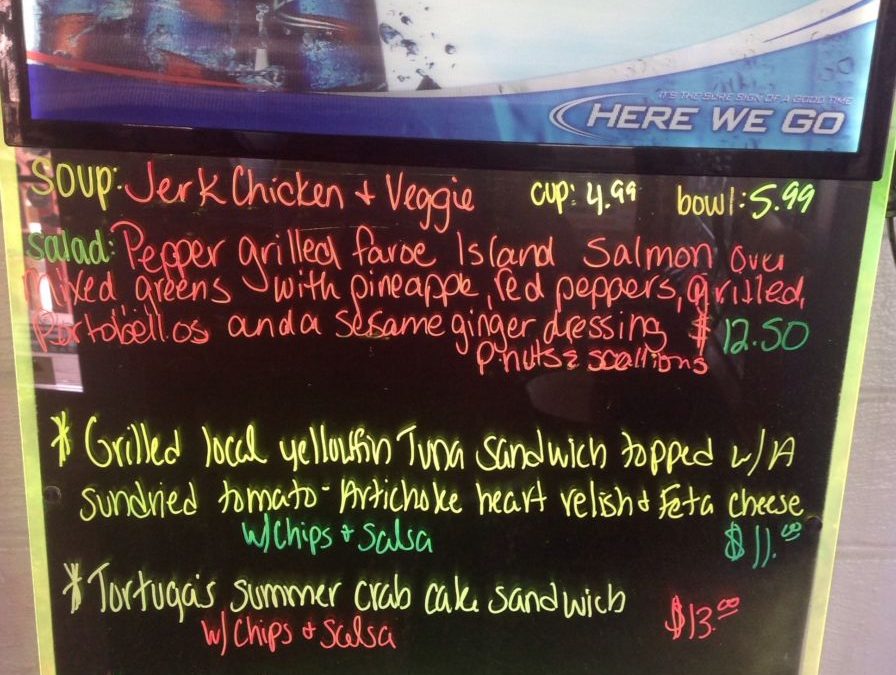 IT'S THE SURE SIGN OF A GOOD TIME
HERE WE GO
Soup: Jerk Chicken + Veggie cup: 4.99 bowl: 5.99
Salad: Pepper grilled faroe Island Salmon over
mixed greens with pineapple, red peppers, grilled,
portobellos and a sesame ginger dressing $12.50
pnuts & scallions
* Grilled local yellowfin Tuna sandwich topped w/ A
sundried tomato - Artichoke heart relish + Feta cheese
w/ Chips + Salsa $11.00
* Tortuga's summer crab cake sandwich
w/ Chips + Salsa $13.00